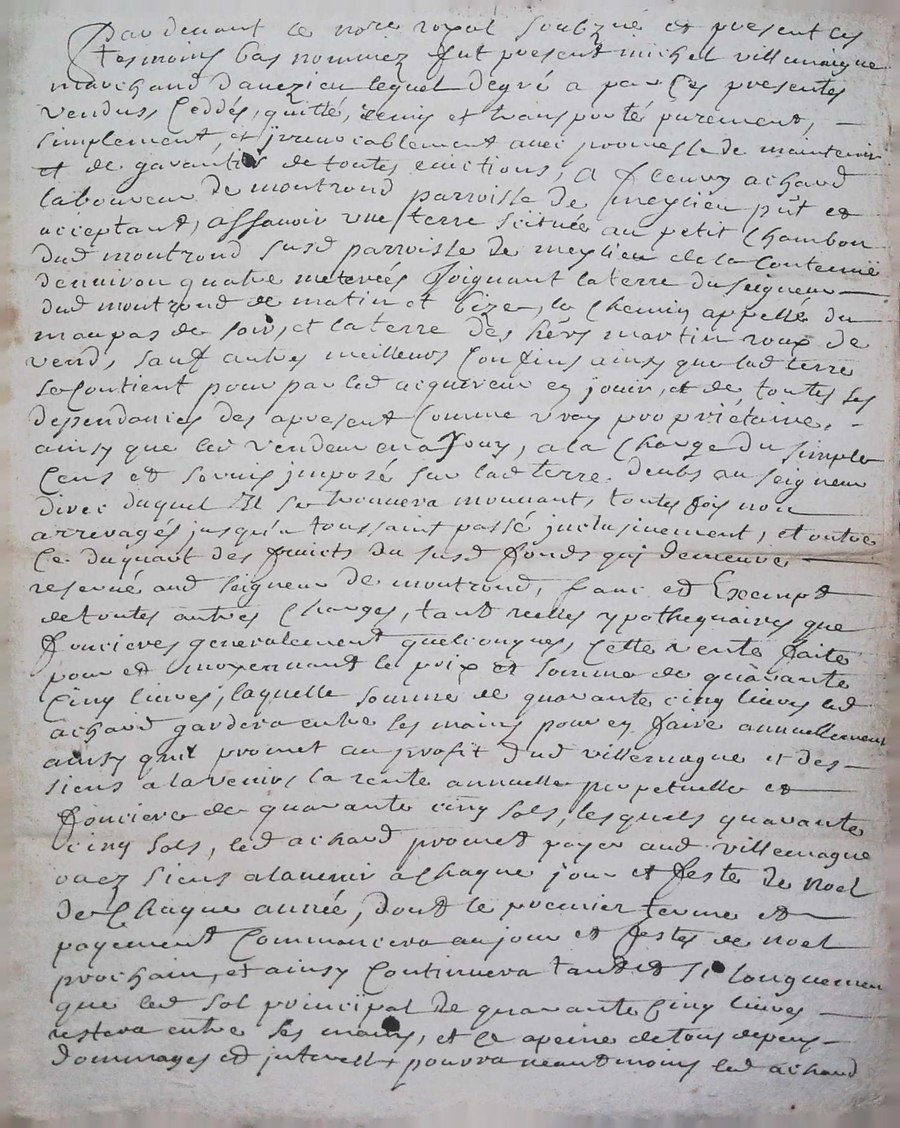 Pardevant le nore royal soubzné et present les
tesmoins bas nommez fut present michel villemagne
marchand d'auezieu lequel de gré a par ces presentes
vendus, ceddés, quitté, remis et transporté purement,
simplement, et irrevocablement avec promesse de maintenir
et de garantir de toutes evictions, A fleury achard
laboureur de montrond parroisse de meylieu pñt et
acceptant, assavoir une terre scituée au petit Chambon
dud montrond susd parroisse de meylieu de la Contenüe
denviron quatre meterées Joignant la terre du seigneur
dud montrond de matin et bize, le Chemin appellé du
maupas de soir, et la terre des hers martin roux de
vend, sauf autres meilleurs Confins ainsy que lad terre
se Contient pour par led acquereur en jouir, et de toutes ses
dependances des apresent Comme vray proprietaire,
ainsy que led vendeur en a Jouy, a la Charge du simple
Cens et servis imposé sur lad terre deubs au seigneur
direc duquel Il se trouvera mouvant, toutes fois non
arreragés jusqu'a toussaint passé inclusivement, et outre
Ce du quart des fruits du susd fonds qui demeure
reservé aud seigneur de montrond, franc et Exempt
de toutes autres Charges, tant reelles ypothequaires que
foncieres generalement quelconques, Cette vente faite
pour et moyennant le prix et somme de quarante
Cinq livres, laquelle somme de quarante cinq livres led
achard gardera entre les mains pour en faire annuellement
ainsy qu'il promet au profit dud villemagne et des
siens a lavenir la rente annuelle perpetuelle et
fonciere de quarante cinq sols, lesquels quarante
cinq sols, led achard promet payer aud villemagne
ou ez siens a lavenir a Chaque jour et feste de noel
de Chaque année, dont le premier terme et
payement Commancera au jour et festes de noel
prochain, et ainsy Continuera tant et si longuement
que led sol principal de quarante Cinq livres
restera entre ses mains, et ce a peine de tous depens
dommages et interests pourra neantmoins led achard